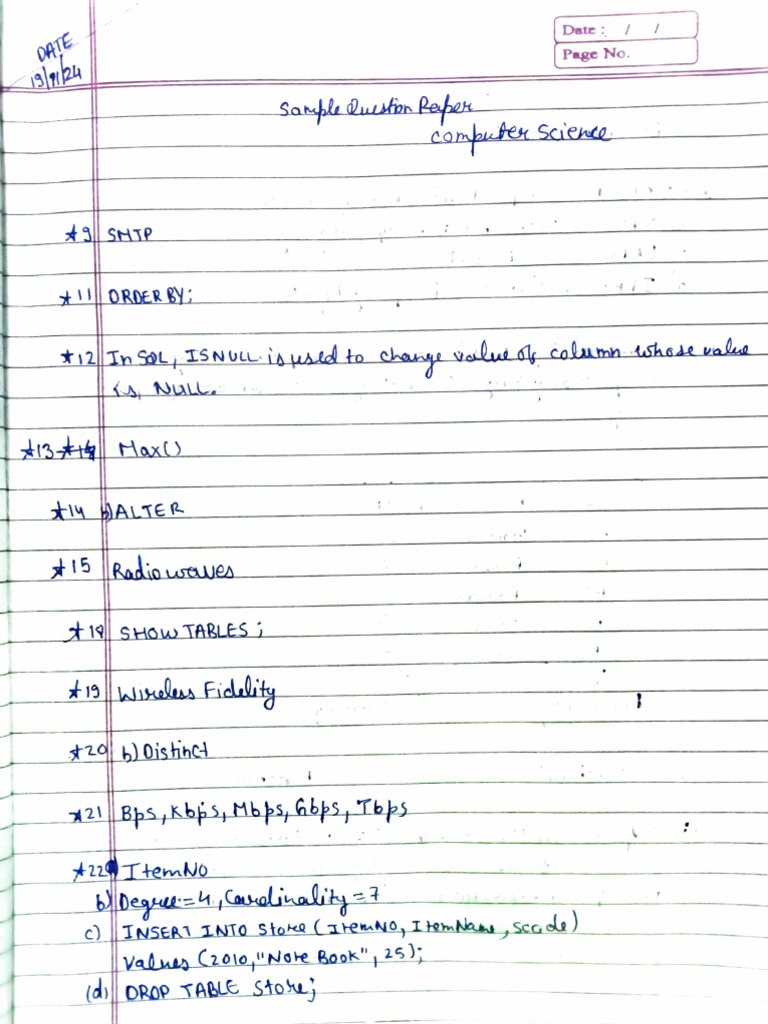 Date : / /
Page No.
DATE
19/11/24
Sample Question Paper
Computer Science
*9 SMTP
*11 ORDER BY;
*12 In SQL, ISNULL is used to change value of column whose value
is NULL.
*13 Max()
*14 b) ALTER
*15 Radio waves
*18 SHOW TABLES;
*19 Wireless Fidelity
*20 b) Distinct
*21 Bps, Kbps, Mbps, Gbps, Tbps
*22 ItemNO
b) Degree = 4, Cardinality = 7
c) INSERT INTO Store (ItemNO, ItemName, Scode)
Values (2010, "Note Book", 25);
(d) DROP TABLE Store;